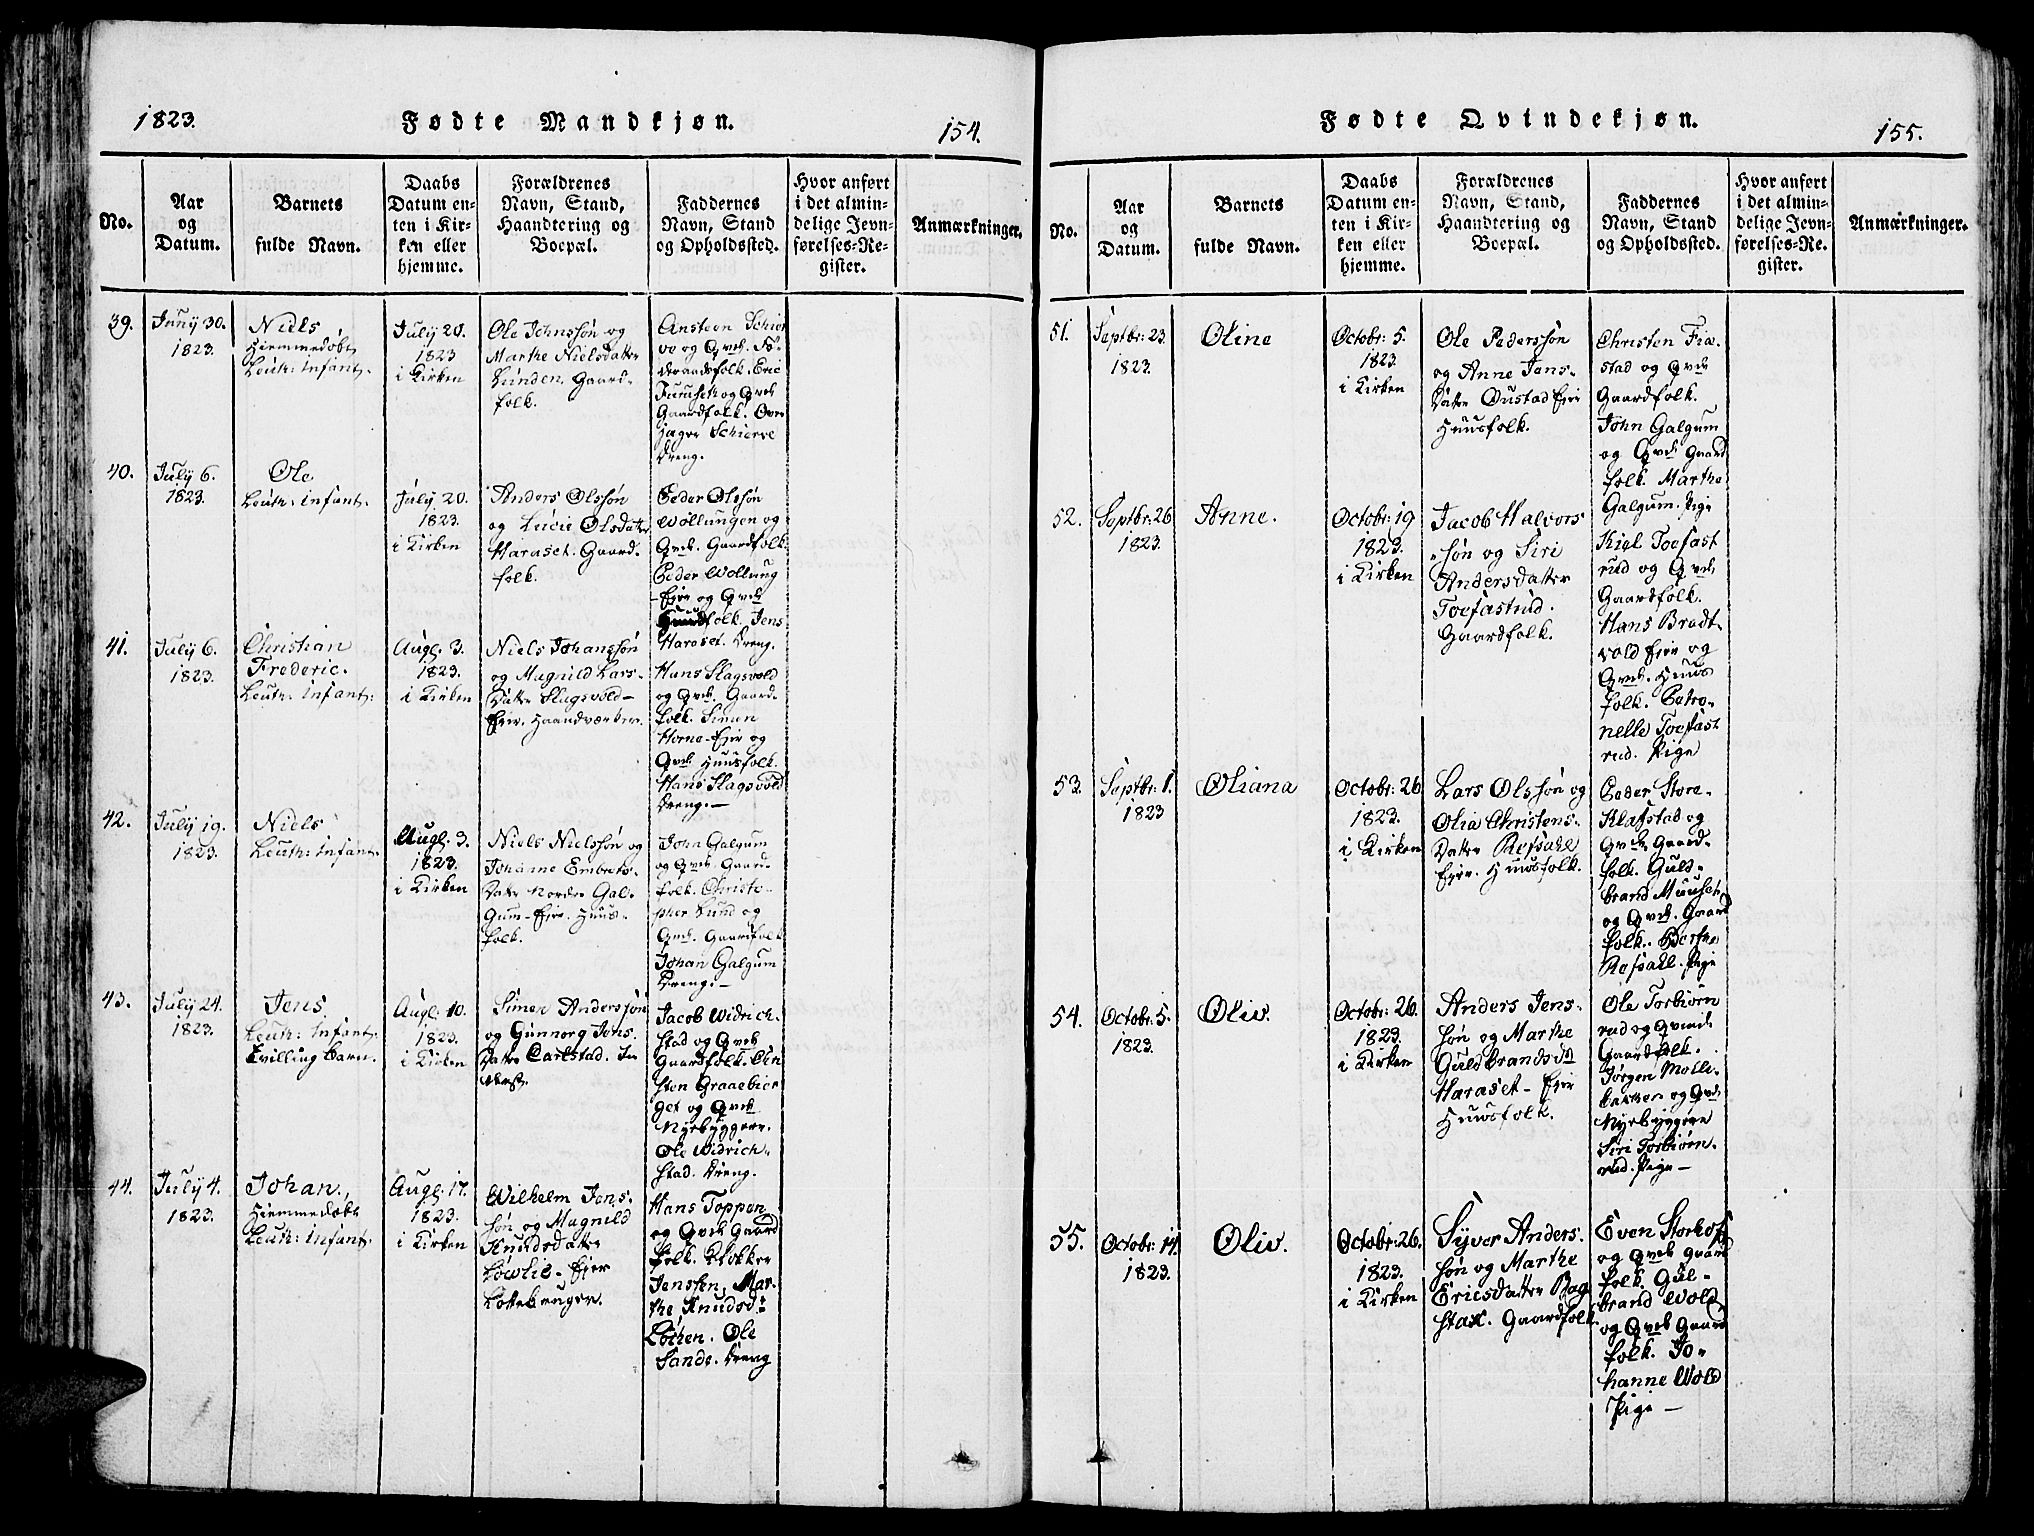 1823.
Fødte Mandkjøn.
154.
No.
Aar
og
Datum.
Barnets
fulde Navn.
Daabs
Datum en-
ten i Kir-
ken eller
hjemme.
Forældrenes
Navn, Stand,
Haandtering og
Boepæl.
Faddernes
Navn, Stand
og Opholdssted.
Hvor anført
i det almin-
delige Jevn-
førelses-Re-
gister.
Anmærkninger.
39.
Juny 30.
1823.
Niels
Hiemmedøbt
Leuth: Infant.
July 20.
1823
i Kirken
Ole Johnssøn og
Marthe Nielsdatter
Lunden. Gaard-
folk.
Ansteen Schier
ve og Qvde. No-
deraadsfolk. Eric
Furuseth og Qvde
Gaardfolk. Over
Hager Schierve
Dreng.
40.
July 6.
1823.
Ole
Leuth: Infant.
July 20.
1823.
i Kirken
Anders Olssøn
og Lucie Olsdatter
Haraset. Gaard-
folk.
Peder Olssøn
Wollungen og
Qvde. Gaardfolk.
Peder Wollung
-Eier og Qvde
folk. Jens
Haraset. Dreng.
41.
July 6.
1823.
Christian
Frederic.
Leuth: Infant:
Augl. 3.
1823.
i Kirken
Niels Johanssøn
og Magnild Lars-
Datter Slagsvold-
Eier. Haandværker.
Hans Slagsvold
og Qvde. Gaard-
folk. Simen
Horne-Eier og
Qvde. Huusfolk.
Hans Slagsvold
Dreng.-
42.
July 19.
1823.
Niels
Leuth: Infant.
Augl. 3.
1823.
i Kirken
Niels Nielssøn og
Johanne Embrets-
Datter Nordre Gal-
gum-Eier. Huus-
folk.
John Galgum
og Qvde. Gaard-
folk. Christo-
pher Lund og
Qvde. Gaardfolk
Johan Galgum
Dreng.-
43.
July 24.
1823.
Jens.
Leuth: Infant.
Tvilling Barn.
Augl. 10.
1823.
i Kirken
Simen Anderssøn
og Gunnorg Jens
Datter Carlstad. In
Jacob Widrich-
stad og Qvde
Gaardfolk. Chri
sten Graaebier
get og Qvde
Nyebyggere.
Ole Widrich-
stad. Dreng.
44.
July 4.
1823.
Johan.
Hiemmedøbt
Leuth: Infant.
Augl. 17.
1823.
i Kirken
Wilhelm Jens-
søn og Magnild
Knudsdatter
Løwlie-Eier
Hans Toppen
og Qvde Gaard
folk. Klokker
Jenssen, Mar-
the Knudsd:
Løchen. Ole
Sande. Dreng
Fødte Qvindekjøn.
155.
No.
Aar
og
Datum.
Barnets
fulde Navn.
Daabs
Datum en-
ten i Kir-
ken eller
hjemme.
Forældrenes
Navn, Stand,
Haandtering og
Boepæl.
Faddernes
Navn, Stand
og Opholdssted.
Hvor anført
i det almin-
delige Jevn-
førelses-Re-
gister.
Anmærkninger.
51.
Septbr: 23.
1823.
Oline
Octobr: 5.
1823.
i Kirken
Ole Pederssøn
og Anne Jens-
Datter Oustad Eier
Huusfolk.
Christen Fiæ-
stad og Qvde
Gaardfolk.
John Galgum
og Qvde Gaard
folk. Marthe
Galgum. Pige
52.
Septbr: 26
1823.
Anne.
Octobr: 19
1823.
i Kirken
Jacob Halvors
-søn og Siri
Andersdatter
Toefastrud.
Gaardfolk.
Kiel Toefast
rud og Qvde
Gaardfolk.
Hans Bradt-
vold Eier og
Qvde. Huus
folk. Petro-
nelle Toefast
rud. Pige
53.
Septbr: 1.
1823
Oliana
Octobr: 26
1823.
i Kirken
Lars Olssøn og
Olia Christens-
Datter Refsahl
Eier. Huusfolk.
Peder Store-
Klafstad og
Qvde Gaard-
folk. Guld-
brand Muuset
og Qvde. Gaard
folk. Berthe
Refsahl. Pige
54.
Octobr: 5.
1823.
Oliv.
Octobr: 26.
1823.
i Kirken
Anders Jens-
søn og Marthe
Guldbrandsd
Haraset-Eier
Huusfolk.
Ole Torbiørn
rud og Qvinde
Gaardfolk.
Jørgen Molle-
bakken og Qvde
Nyebyggere
Siri Torbiørn-
rud. Pige-
55.
Octobr: 14.
1823.
Oliv.
Octobr: 26.
1823.
i Kirken
Syver Anders-
søn og Marthe
Ericsdatter Bag
stax. Gaardfolk
Even Storhof
og Qvde Gaard
folk. Gul-
brand Wold
og Qvde Gaard
folk. Jo-
hanne Wold
Pige-